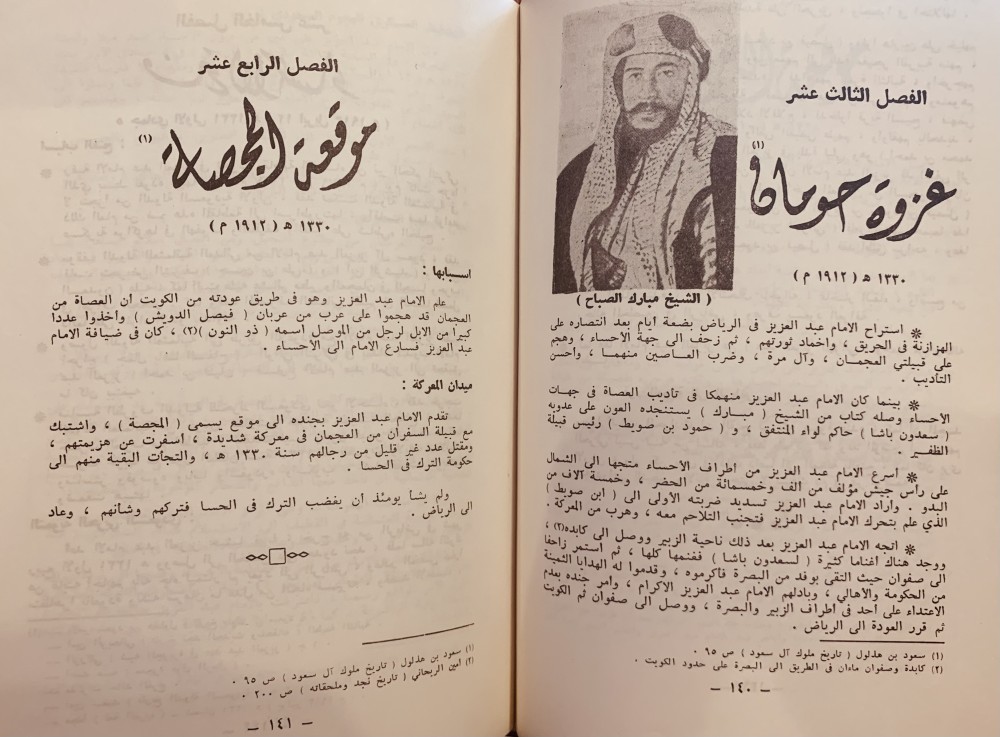 الفصل الثالث عشر
غزوة حومان (١)
١٣٣٠ هـ ( ١٩١٢ م )
( الشيخ مبارك الصباح )
❋ استراح الامام عبد العزيز فى الرياض بضعة أيام بعد انتصاره على
الهزازنة فى الحريق ، واخماد ثورتهم ، ثم زحف الى جهة الاحساء ، وهجم
على قبيلتي العجمان ، وآل مرة ، وضرب العاصين منهما ، وأحسن
التأديب .
❋ بينما كان الامام عبد العزيز منهمكا فى تأديب العصاة فى جهات
الاحساء وصله كتاب من الشيخ ( مبارك ) يستنجده العون على عدويه
( سعدون باشا ) حاكم لواء المنتفق ، و ( حمود بن صويط ) رئيس قبيلة
الظفير .
❋ أسرع الامام عبد العزيز من أطراف الاحساء متجها الى الشمال
على رأس جيش مؤلف من ألف وخمسمائة من الحضر ، وخمسة آلاف من
البدو . وأراد الامام عبد العزيز تسديد ضربته الأولى الى ( ابن صويط )
الذي علم بتحرك الامام عبد العزيز فتجنب التلاحم معه ، وهرب من المعركة .
❋ أتجه الامام عبد العزيز بعد ذلك ناحية الزبير ووصل الى كابده(٢) ،
ووجد هناك أغناما كثيرة ( لسعدون باشا ) فغنمها كلها ، ثم استمر زاحفا
الى صفوان حيث التقى بوفد من البصرة فأكرموه ، وقدموا له الهدايا الثمينة
من الحكومة والاهالي ، وبادلهم الامام عبد العزيز الاكرام ، وأمر جنده بعدم
الاعتداء على أحد فى أطراف الزبير والبصرة ، ووصل الى صفوان ثم الكويت
ثم قرر العودة الى الرياض .
(١) سعود بن هذلول ( تاريخ ملوك آل سعود ) ص ٩٥ .
(٢) كابدة وصفوان ماءان فى الطريق الى البصرة على حدود الكويت .
— ١٤٠ —
الفصل الرابع عشر
موقعة المجصة (١)
١٣٣٠ هـ ( ١٩١٢ م )
اسبابها :
علم الامام عبد العزيز وهو فى طريق عودته من الكويت أن العصاة من
العجمان قد هجموا على عرب من عربان ( فيصل الدويش ) وأخذوا عددا
كبيرا من الابل لرجل من الموصل اسمه ( ذو النون )(٢) ، كان فى ضيافة الامام
عبد العزيز فسارع الامام الى الأحساء .
ميدان المعركة :
تقدم الامام عبد العزيز بجنده الى موقع يسمى ( المجصة ) ، واشتبك
مع قبيلة السفران من العجمان فى معركة شديدة ، أسفرت عن هزيمتهم ،
ومقتل عدد غير قليل من رجالهم سنة ١٣٣٠ هـ ، والتجأت البقية منهم الى
حكومة الترك فى الحسا .
ولم يشأ يومئذ أن يغضب الترك فى الحسا فتركهم وشأنهم ، وعاد
الى الرياض .
(١) سعود بن هذلول ( تاريخ ملوك آل سعود ) ص ٩٥ .
(٢) أمين الريحاني ( تاريخ نجد وملحقاته ) ص ٢٠٠ .
— ١٤١ —